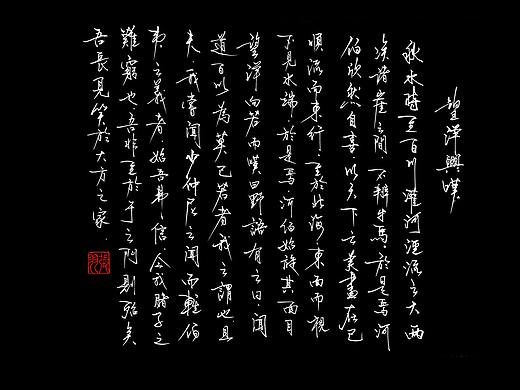 望洋興嘆
秋水時至百川灌河涇流之大兩
涘渚崖之間不辨牛馬於是焉河
伯欣然自喜以天下之美盡在己
順流而東行至於北海東面而視
不見水端於是焉河伯始旋其面目
望洋向若而嘆曰野語有之曰聞
道百以為莫己若者我之謂也且
夫我嘗聞少仲尼之聞而輕伯
夷之義者始吾弗信今我睹子之
難窮也吾非至於子之門則殆矣
吾長見笑於大方之家